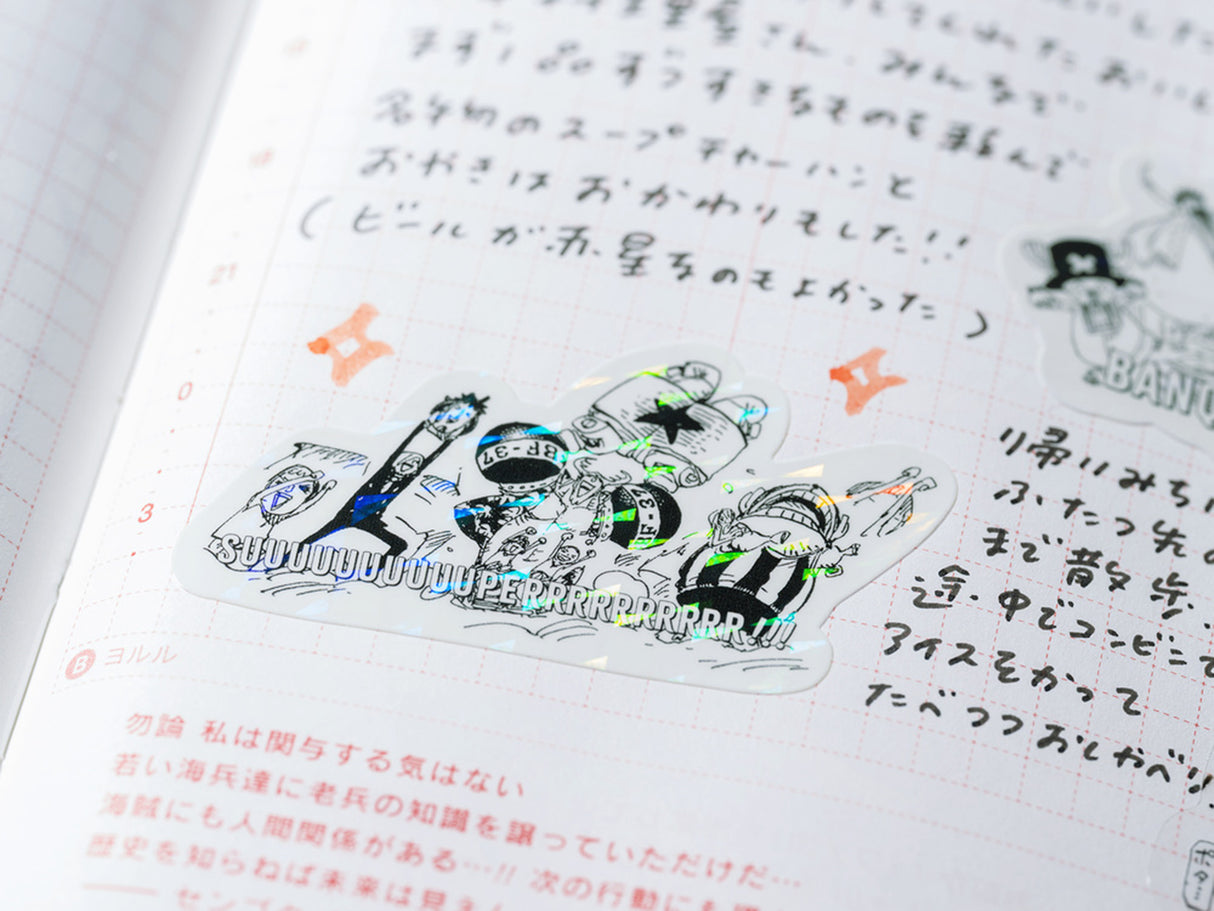 まず1品ずつすきなものを頼んで
名物のスープチャーハンと
おやきはおかわりもした!!
(ビールが赤星なのもよかった)
21
0
3
BF-37
BF-37
SUUUUUUUUUUPERRRRRRRRRR!!!
帰りみち
ふたつ先の
まで散歩.
途中でコンビニで
アイスをかって
たべつつおしゃべり
B ヨルル
勿論 私は関与する気はない
若い海兵達に老兵の知識を譲っていただけだ…
海賊にも人間関係がある…!! 次の行動にも
歴史を知らねば未来は見え